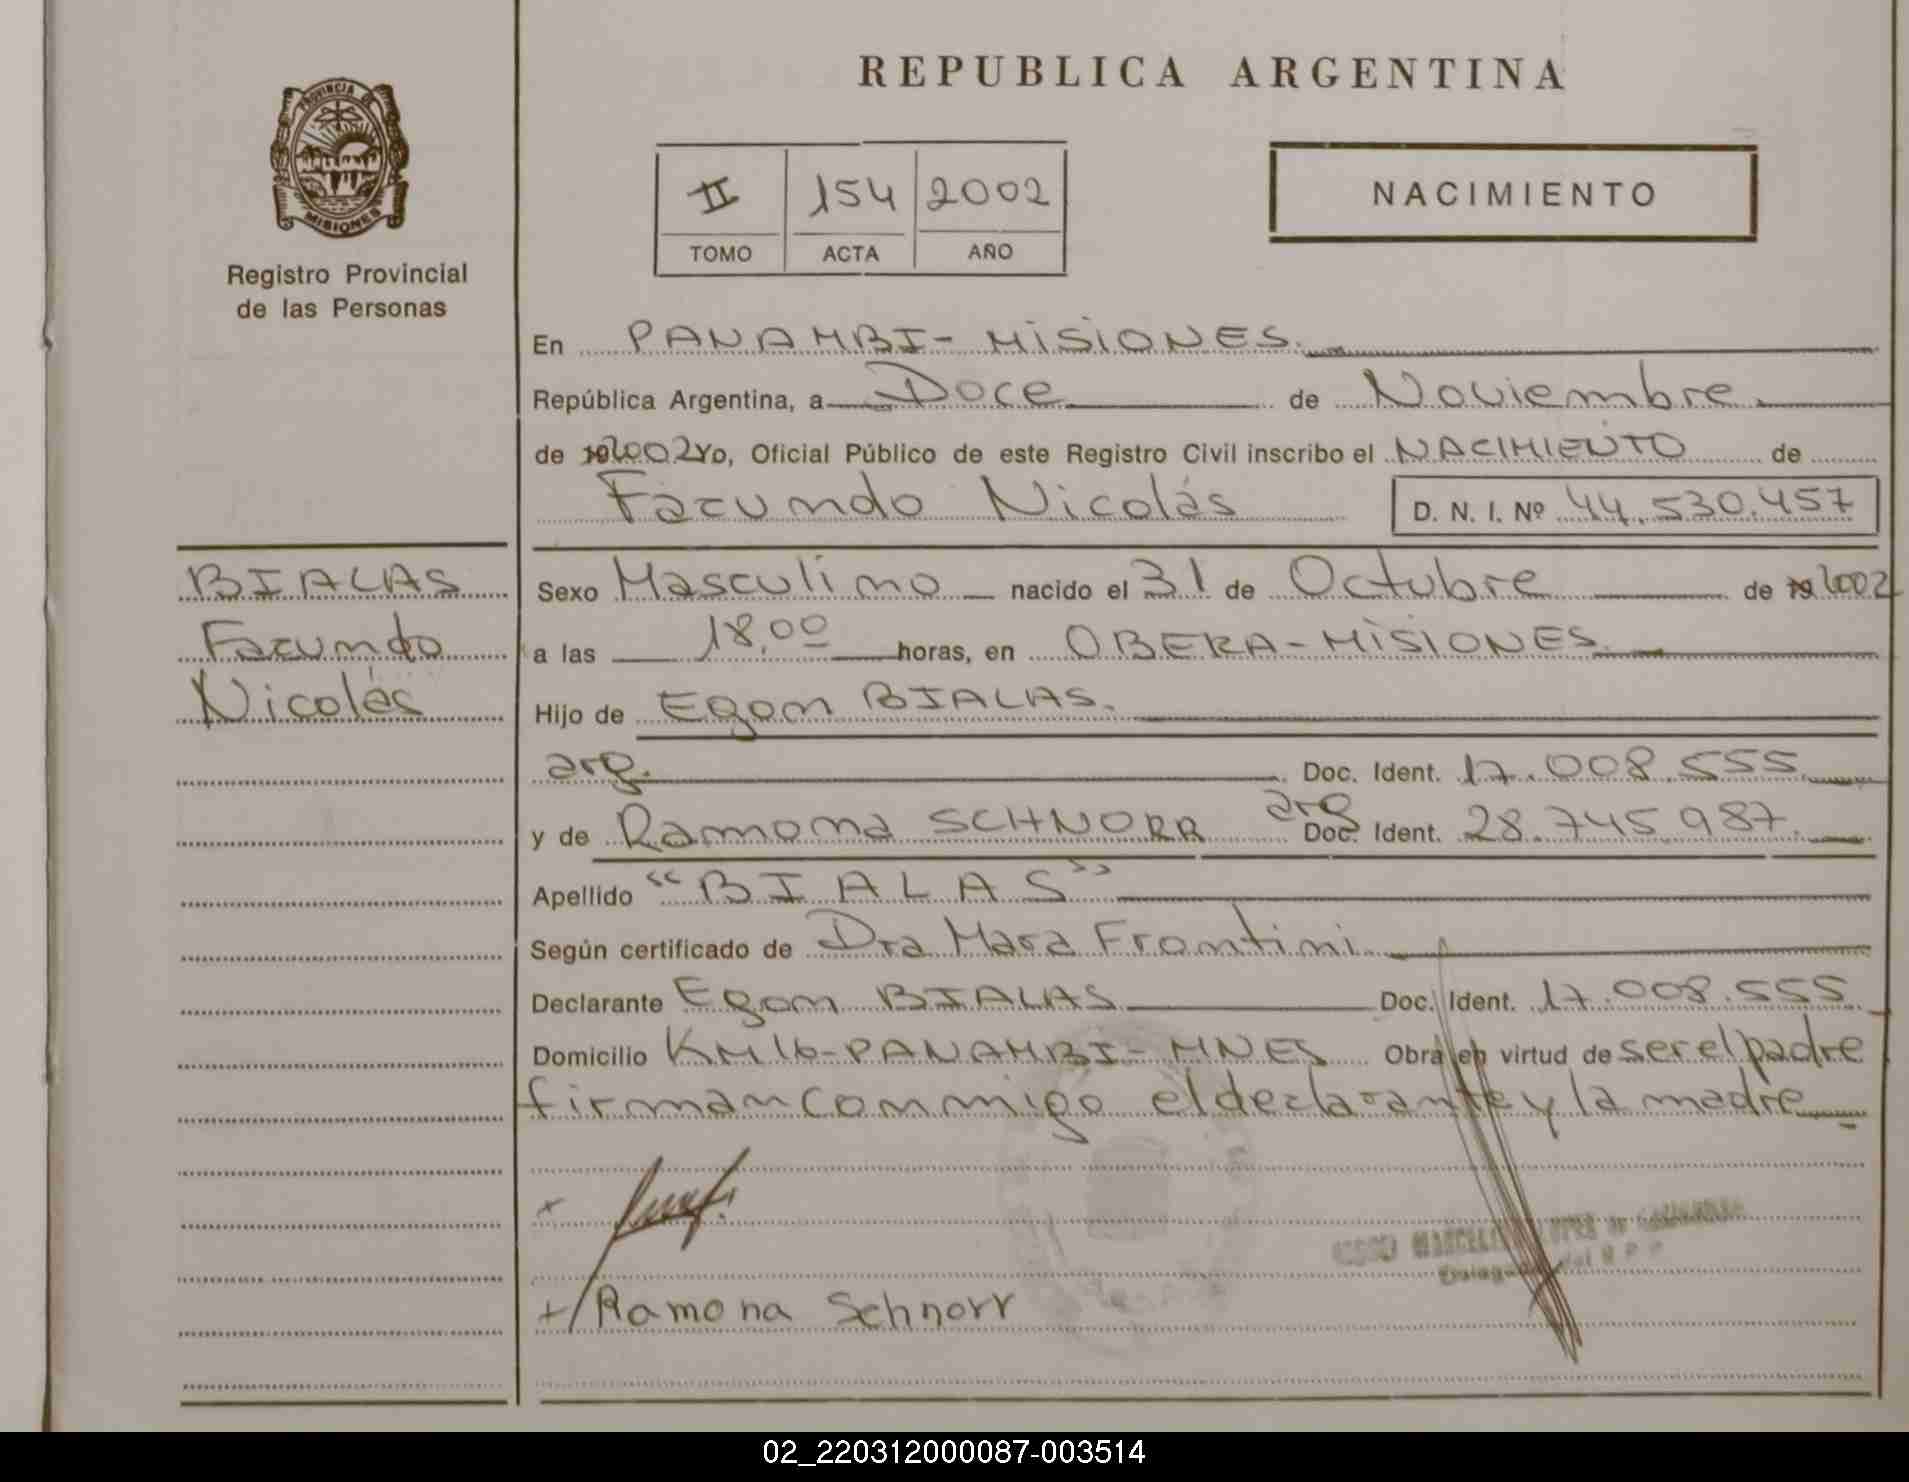 PROVINCIA DE
MISIONES
Registro Provincial
de las Personas
BIALAS
Facundo
Nicolás
REPUBLICA ARGENTINA
II 154 2002
TOMO ACTA AÑO
NACIMIENTO
En PANAMBI - MISIONES.
República Argentina, a Doce de Noviembre
de 192002 Yo, Oficial Público de este Registro Civil inscribo el NACIMIENTO de
Facundo Nicolás D. N. I. Nº 44.530.457
Sexo Masculino nacido el 31 de Octubre de 19 2002
a las 18,00 horas, en OBERA - MISIONES
Hijo de Egon BIALAS.
arg. Doc. Ident. 17.008.555
y de Ramona SCHNORR arg Doc. Ident. 28.745.987.
Apellido "BIALAS"
Según certificado de Dra Mara Frontini
Declarante Egon BIALAS Doc. Ident. 17.008.555
Domicilio KM 16 - PANAMBI - MNES Obra en virtud de ser el padre
firman conmigo el declarante y la madre
x
+/ Ramona Schnorr
02_220312000087-003514